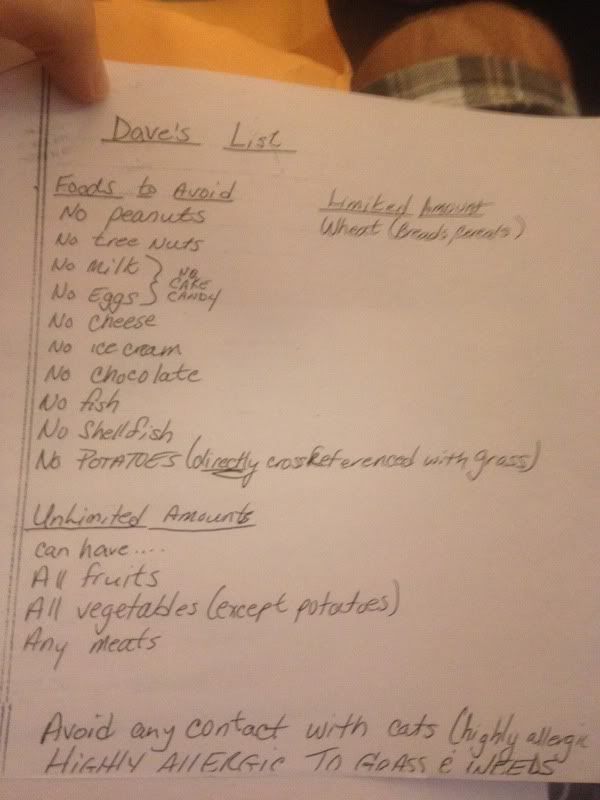 Dave's List
Foods to Avoid
No peanuts
No tree Nuts
No Milk
No Eggs
NO CAKE CANDY
No cheese
No ice cream
No chocolate
No fish
No Shellfish
No POTATOES (directly crossReferenced with grass)
Limited Amount
Wheat (Breads, cereals)
Unlimited Amounts
can have....
All fruits
All vegetables (except potatoes)
Any meats
Avoid any contact with cats (highly allergic
HIGHLY AllERGIC TO GRASS & WEEDS